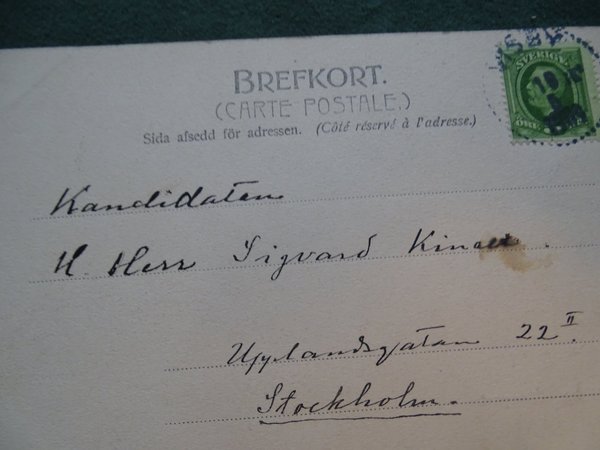 BREFKORT.
(CARTE POSTALE.)
Sida afsedd för adressen. (Côté réservé à l'adresse.)
SVERIGE
Kandidaten
H. Herr Sigvard
Upplandsgatan 22 II.
Stockholm.